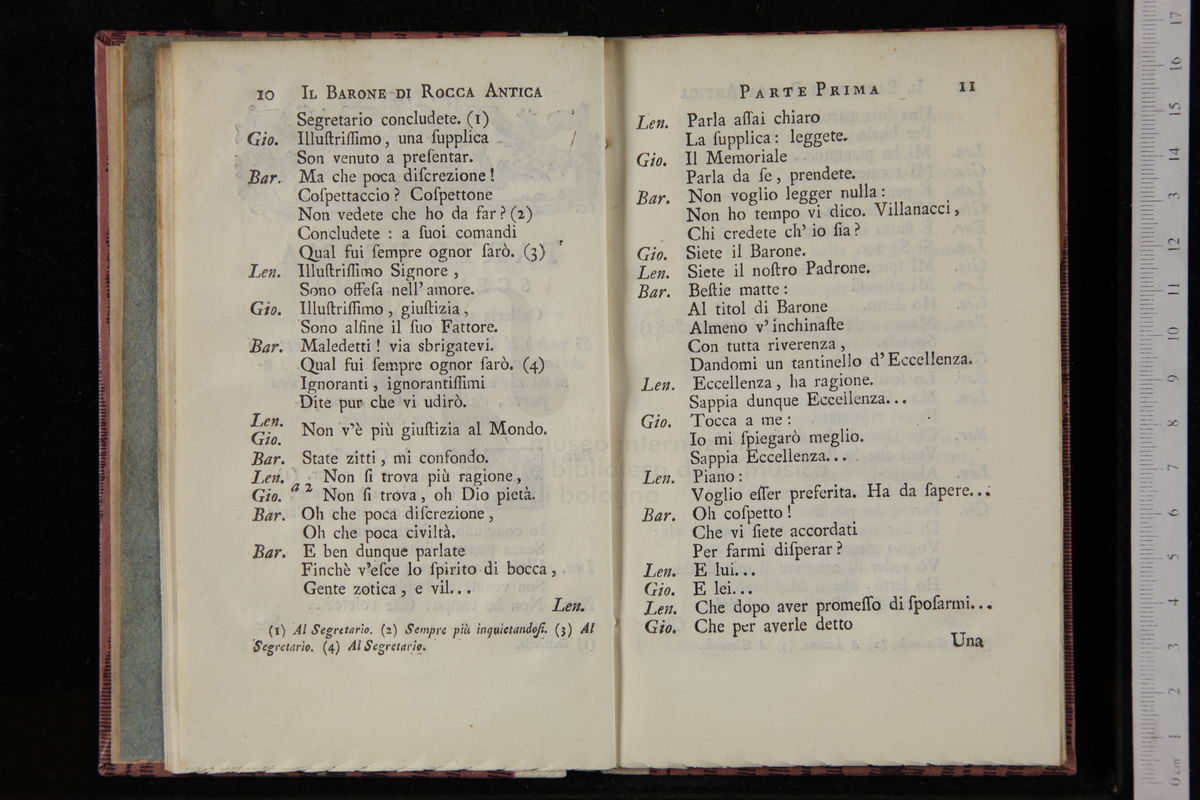 10 Il Barone di Rocca Antica
Segretario concludete. (1)
Gio. Illuſtriſſimo, una ſupplica
Son venuto a preſentar.
Bar. Ma che poca diſcrezione!
Coſpettaccio? Coſpettone
Non vedete che ho da far? (2)
Concludete : a ſuoi comandi
Qual fui ſempre ognor ſarò. (3)
Len. Illuſtriſſimo Signore,
Sono offeſa nell'amore.
Gio. Illuſtriſſimo, giuſtizia,
Sono alfine il ſuo Fattore.
Bar. Maledetti! via sbrigatevi.
Qual fui ſempre ognor ſarò. (4)
Ignoranti, ignorantiſſimi
Dite pur che vi udirò.
Len.
Gio. Non v'è più giuſtizia al Mondo.
Bar. State zitti, mi confondo.
Len. Non ſi trova più ragione,
Gio. a 2 Non ſi trova, oh Dio pietà.
Bar. Oh che poca diſcrezione,
Oh che poca civiltà.
Bar. E ben dunque parlate
Finchè v'eſce lo ſpirito di bocca,
Gente zotica, e vil...
Len.
(1) Al Segretario. (2) Sempre più inquietandoſi. (3) Al
Segretario. (4) Al Segretario.
Parte Prima 11
Len. Parla aſſai chiaro
La ſupplica: leggete.
Gio. Il Memoriale
Parla da ſe, prendete.
Bar. Non voglio legger nulla:
Non ho tempo vi dico. Villanacci,
Chi credete ch' io ſia?
Gio. Siete il Barone.
Len. Siete il noſtro Padrone.
Bar. Beſtie matte:
Al titol di Barone
Almeno v'inchinaſte
Con tutta riverenza,
Dandomi un tantinello d'Eccellenza.
Len. Eccellenza, ha ragione.
Sappia dunque Eccellenza...
Gio. Tocca a me:
Io mi ſpiegarò meglio.
Sappia Eccellenza...
Len. Piano:
Voglio eſſer preferita. Ha da ſapere...
Bar. Oh coſpetto!
Che vi ſiete accordati
Per farmi diſperar?
Len. E lui...
Gio. E lei...
Len. Che dopo aver promeſſo di ſpoſarmi...
Gio. Che per averle detto
Una
museo internazionale
e biblioteca della musica
di bologna
0 cm 1 2 3 4 5 6 7 8 9 10 11 12 13 14 15 16 17